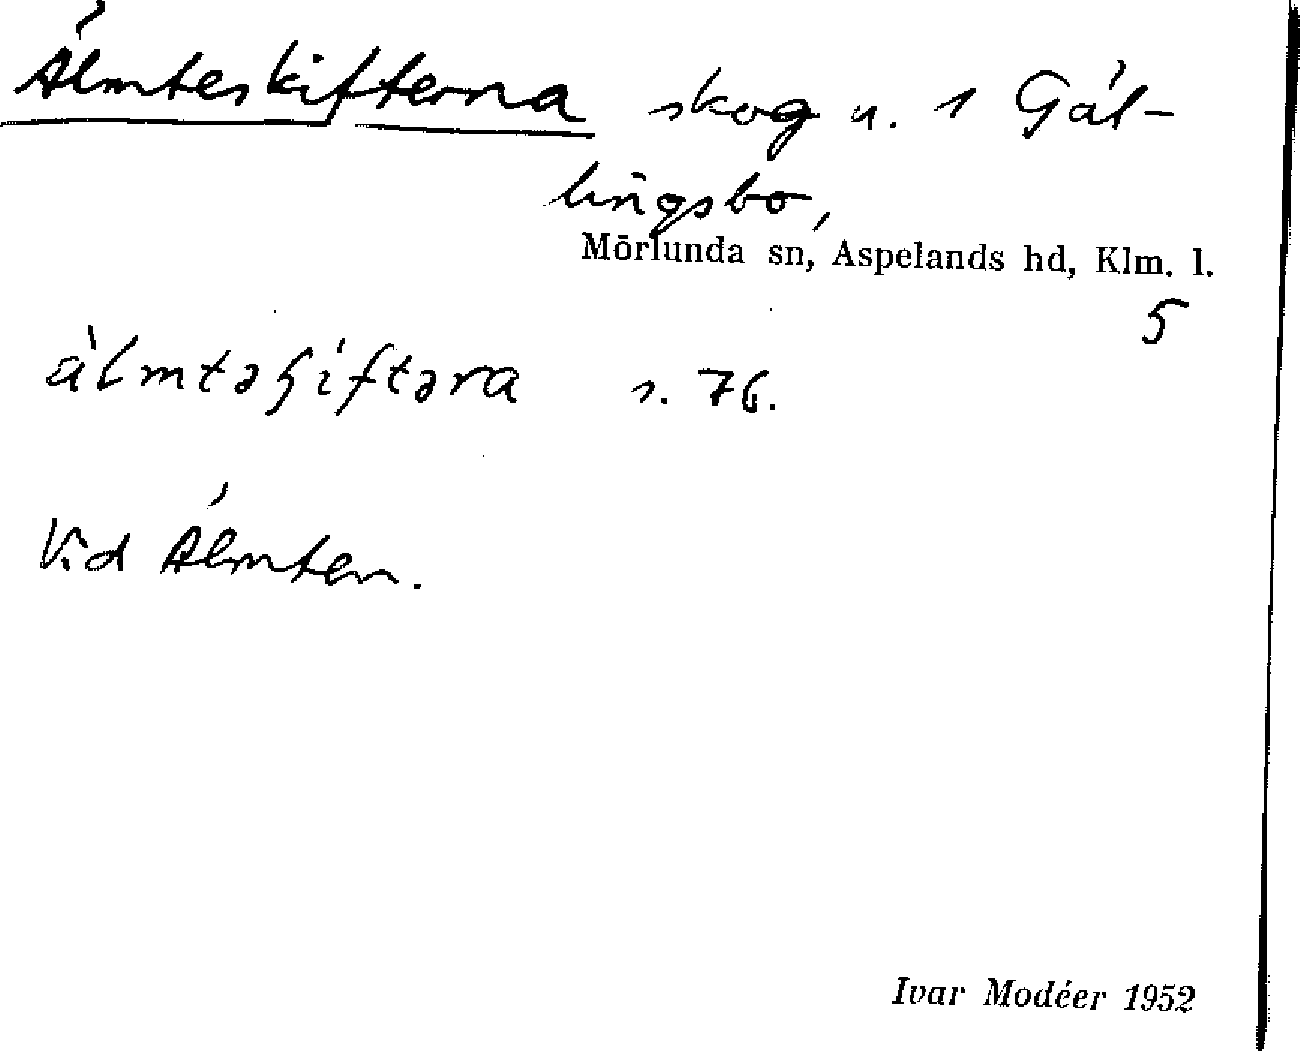 Álmteskifterna skog u. 1 Gál-
lingsbo,
Mörlunda sn, Aspelands hd, Klm. l.
5
álmtəʃiftəra s. 76.
Vid Álmten.
Ivar Modéer 1952